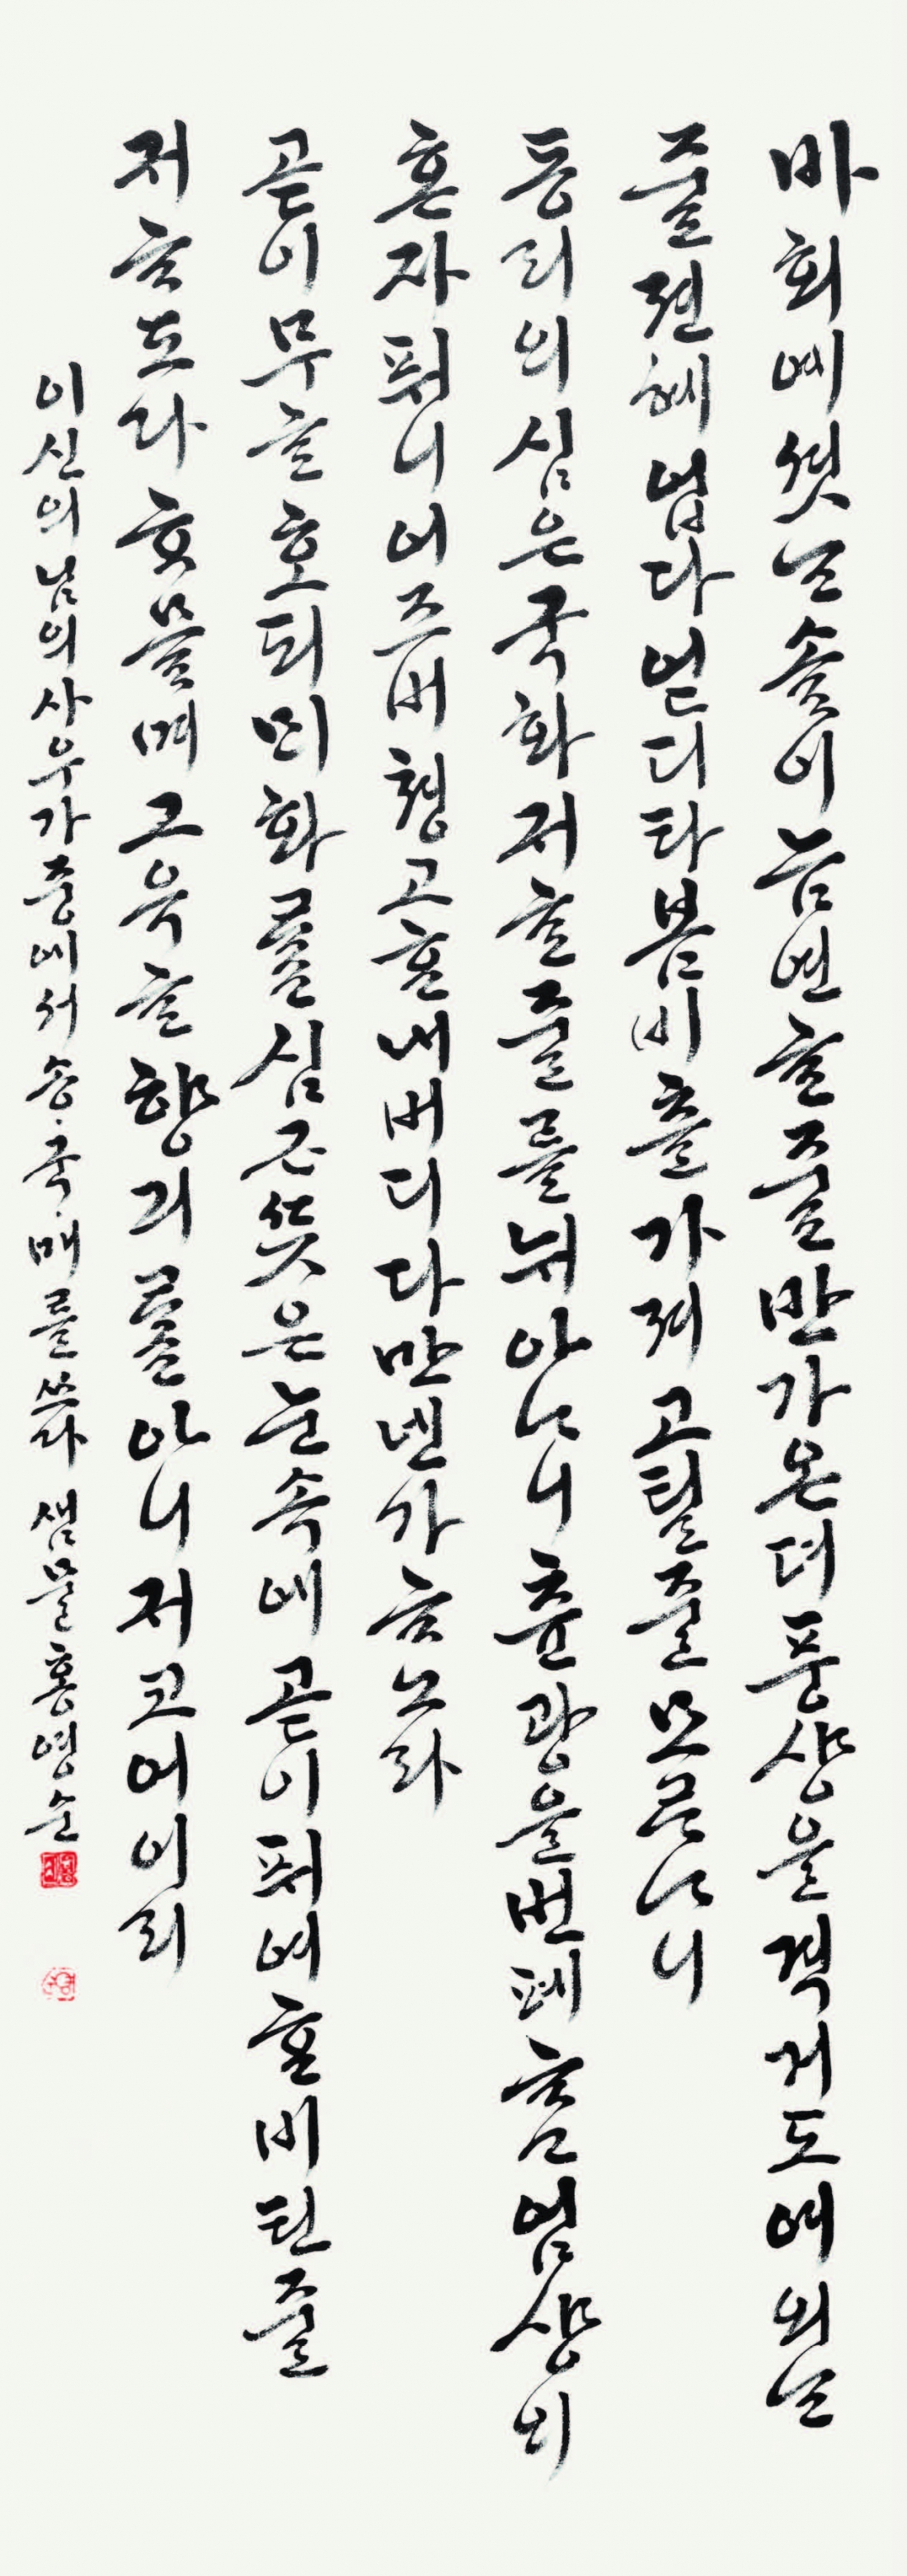 바회예 셧ᄂᆞᆫ 솔이 늠연ᄒᆞᆫ 줄 반가온뎌 풍샹을 격거도 여외ᄂᆞᆫ
줄 젼혜 업다 얻디타 봄비츨 가져 고틸 줄 모ᄅᆞᄂᆞ니
동리의 심은 국화 귀ᄒᆞᆫ 줄를 뉘 아ᄂᆞ니 츈광을 번폐ᄒᆞ고 엄샹의
혼자 퓌니 어즈버 쳥고ᄒᆞᆫ 내 버디 다만 녠가 ᄒᆞ노라
곧이 무ᄒᆞᆫ호ᄃᆡ ᄆᆡ화ᄅᆞᆯ 심근 ᄠᅳᆺ은 눈 속애 곧이 퓌여 ᄒᆞᆫ 비틴 줄
귀ᄒᆞ도다 ᄒᆞᄆᆞᆯ며 그윽ᄒᆞᆫ 향긔ᄅᆞᆯ 아니 귀코 어이리
이신의님의 사우가 중에서 송·국·매를 쓰다 샘물 홍영순